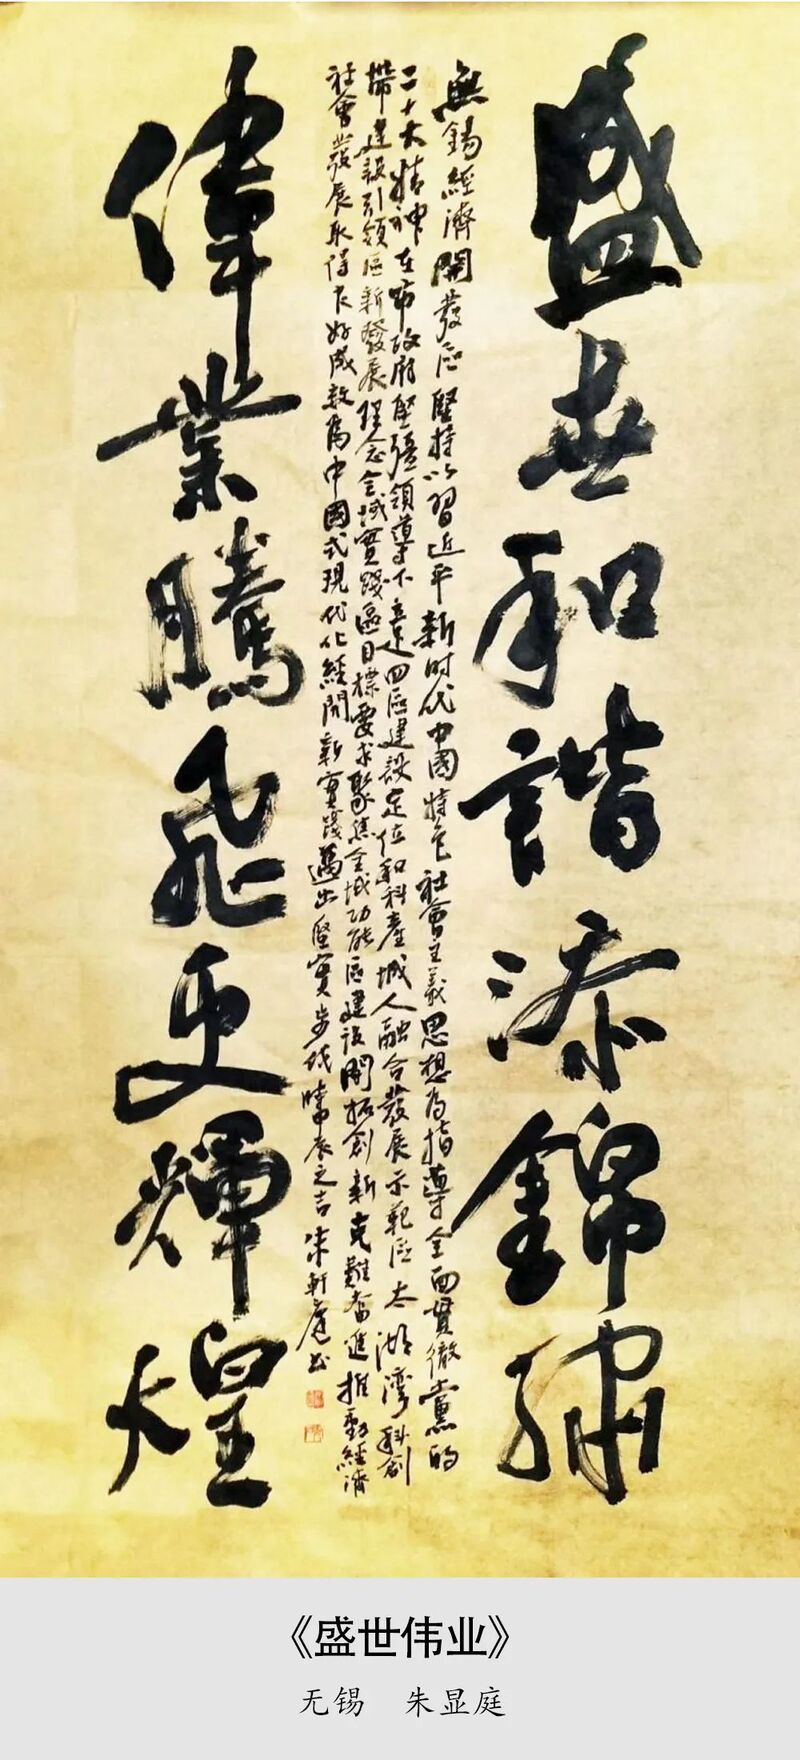 盛世和諧添錦繡
無錫經濟開發區堅持以習近平新时代中國特色社會主義思想為指導全面貫徹黨的
二十大精神在市政府堅强領導下立足四區建設定位和科產城人融合發展示範區太湖灣科創
帶建設引領區新發展理念全域實踐區目標要求聚焦全域功能區建设開拓創新克難奮進推動經濟
社會發展取得良好成效為中國式現代化經開新實踐邁出堅實步伐 辰之吉朱軒庭书
偉業騰飛更輝煌
《盛世伟业》
无锡 朱显庭